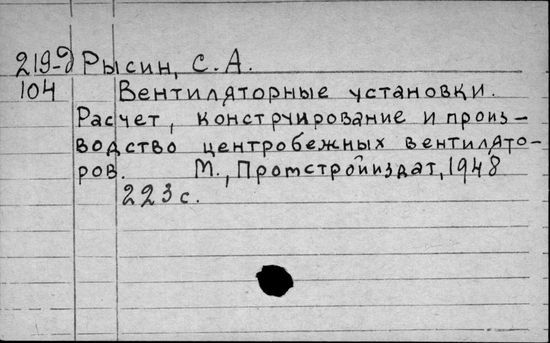 219-д Рысин, С.А.
104 Вентиляторные установки.
Расчет, конструирование и произ-
водство центробежных вентилято-
ров. М., Промстройиздат, 1948
223с.